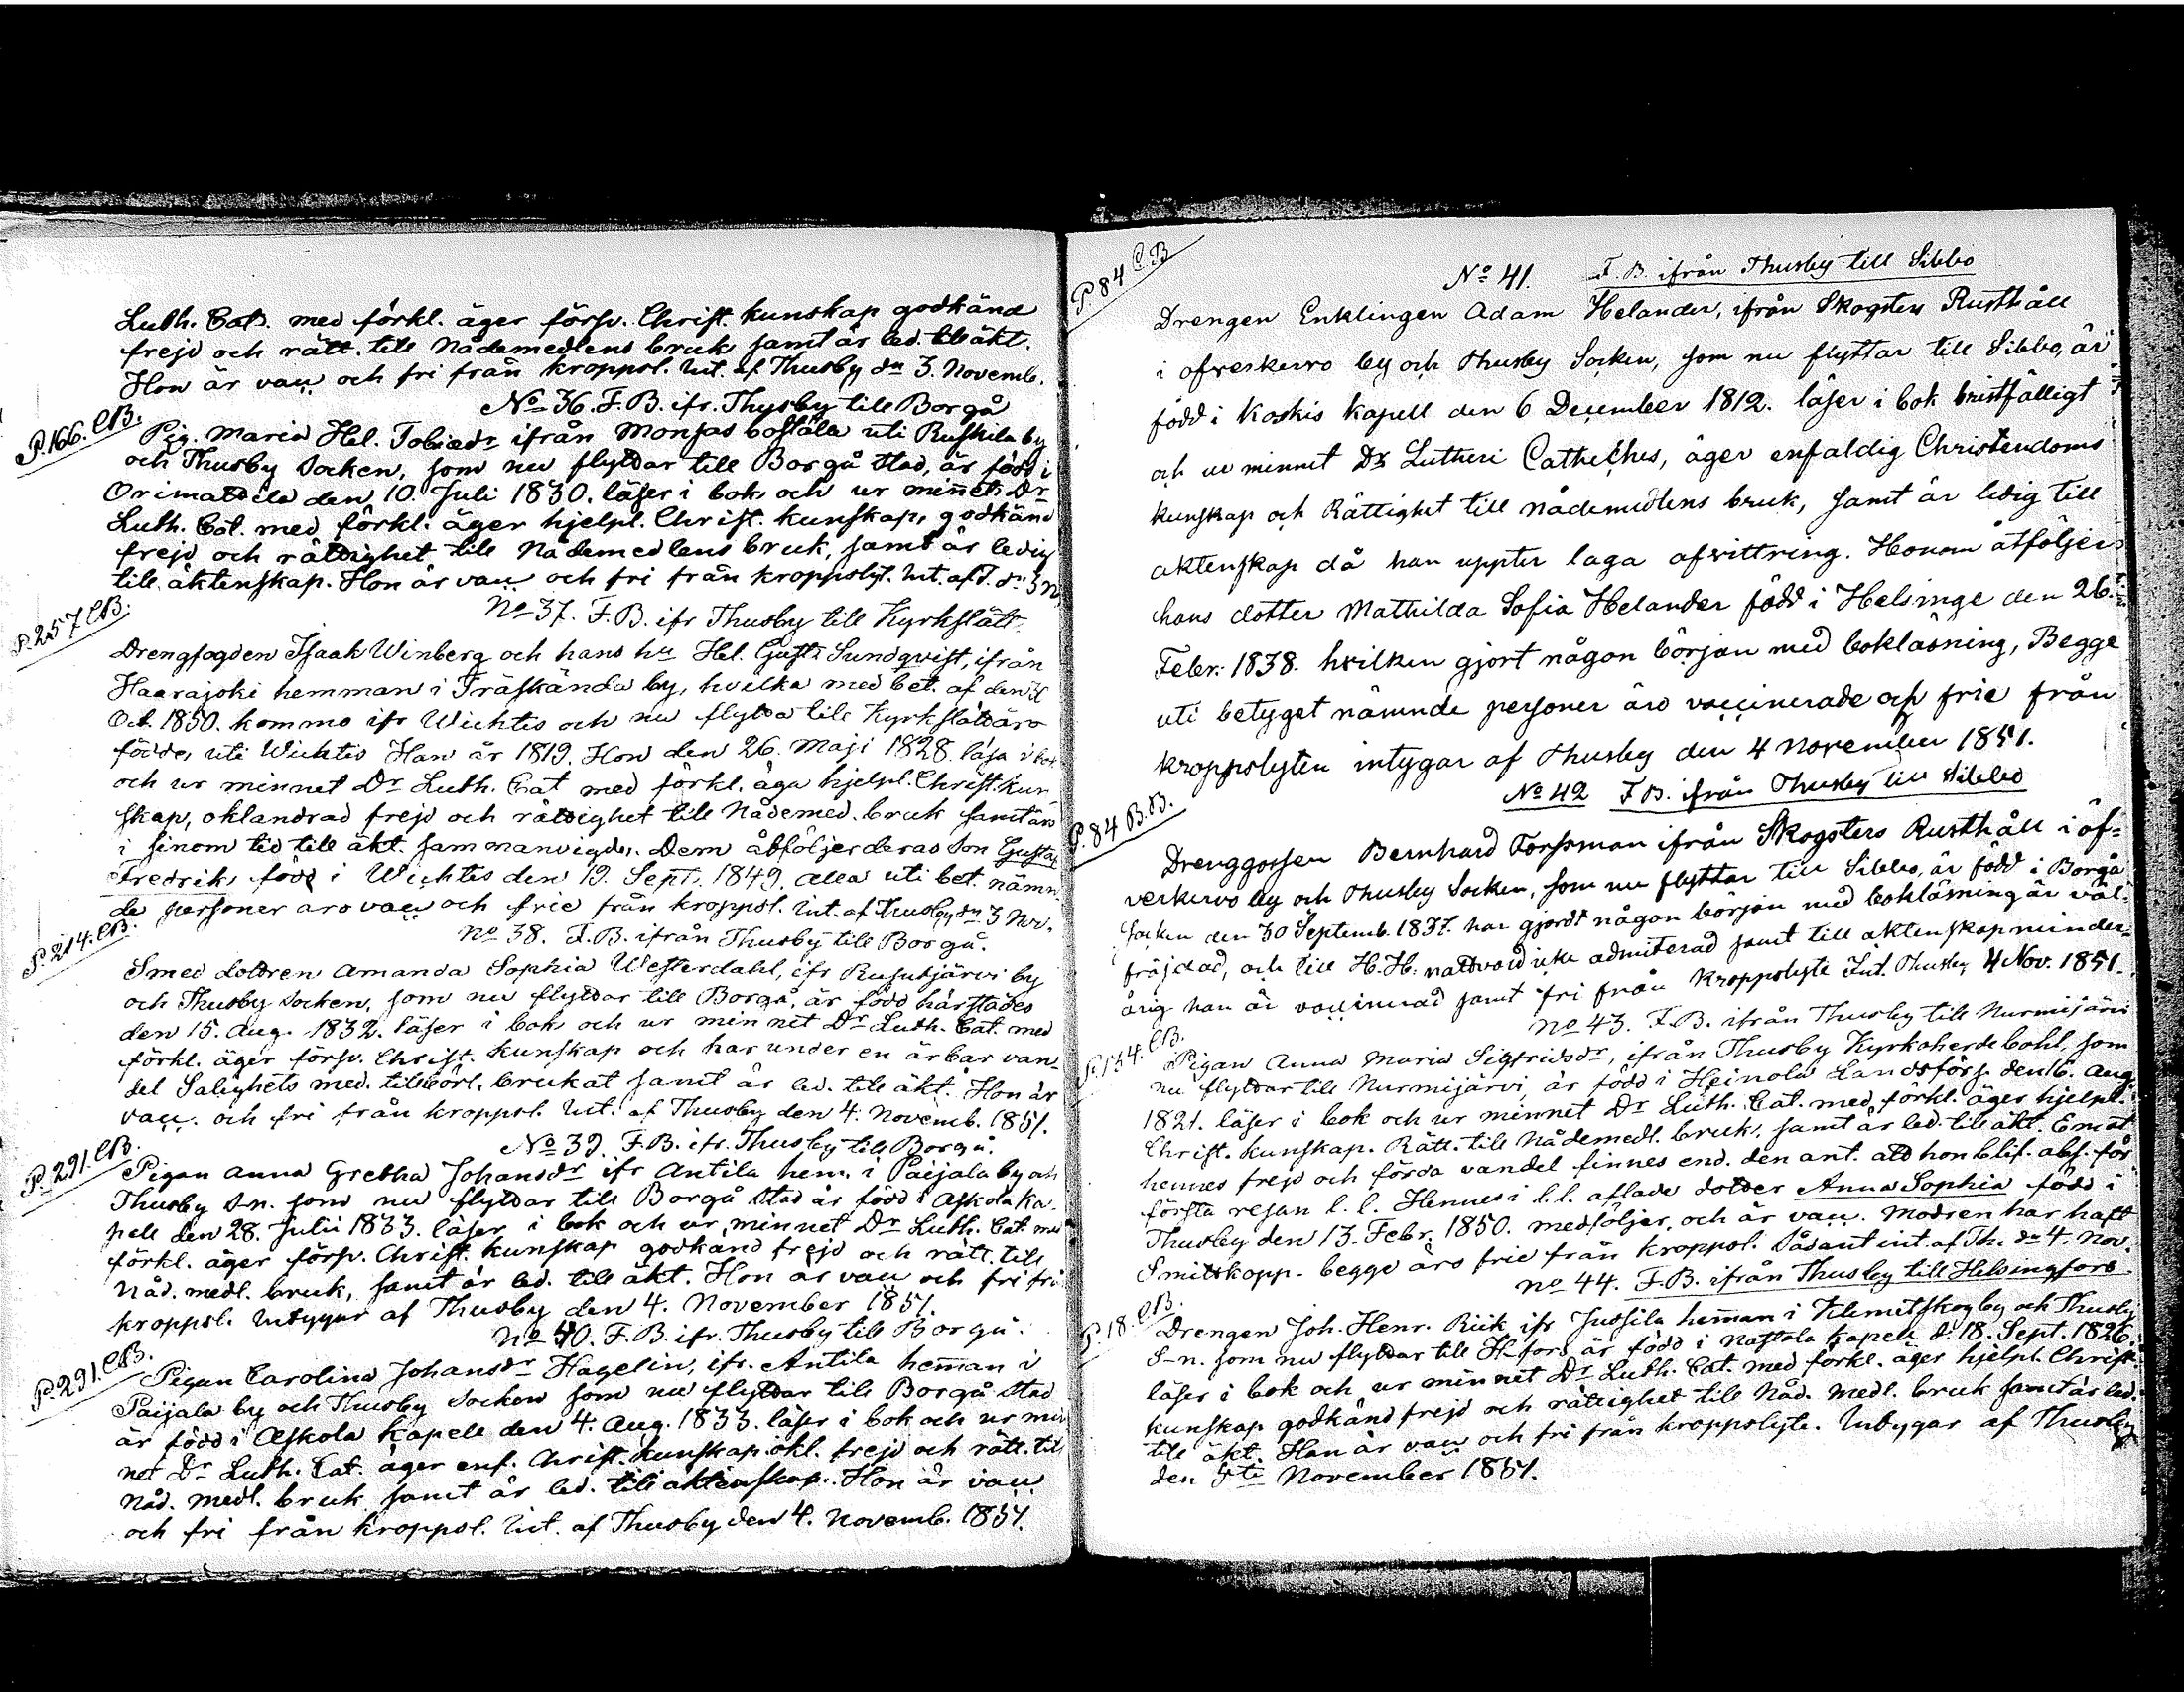 Luth. Cat. med förkl. äger försv. Christ. kunskap godkänd
frejd och rätt. till Nådemedlens bruk samt är led. till äkt.
Hon är vacc. och fri från kroppsl. Int. af Thusby dn 3. Novemb.
No 36. F. B. ifr. Thusby till Borgå
P. 166. C.B.
Pig. Maria Hel. Tobiasdr ifrån Monsas boställe uti Ruskila by
och Thusby Socken, som nu flyttar till Borgå Stad, är född i
Orimattila den 10. Juli 1830. läser i bok och ur minnet Dr
Luth. Cat. med förkl. äger hjelpl. Christ. kunskap, godkänd
frejd och rättighet till Nådemedlens bruk, samt är ledig
till äktenskap. Hon är vacc. och fri från kroppslyt. Int. af T. dn 3 N.
No 37. F. B. ifr Thusby till Kyrkslätt
P. 257 C.B.
Drengfogden Isaak Winberg och hans hu Hel. Gust. Sundqvist, ifrån
Haarajoki hemman i Träskända by, hvilka med bet. af den
Oct. 1850. kommo ifr Wichtis och nu flytta till Kyrkslätt äro
födde, uti Wichtis Han år 1819. Hon den 26. Maji 1828. läsa i bok
och ur minnet Dr Luth. Cat med förkl. äga hjelpl. Christ. kun-
skap, oklandrad frejd och rättighet till Nådemed. bruk samt äro
i sinom tid till äkt. sammanvigde. Dem åtföljer deras Son Gustaf
Fredrik, född i Wichtis den 19. Sept. 1849. alla uti bet. nämn-
de personer äro vacc och frie från kroppsl. Int. af Thusby dn 3 Nov.
No 38. F. B. ifrån Thusby till Borgå.
P. 214. C.B.
Smed dottren Amanda Sophia Westerdahl, ifr Rusutjärvi by
och Thusby Socken, som nu flyttar till Borgå, är född härstädes
den 15. Aug. 1832. läser i bok och ur minnet Dr Luth. Cat. med
förkl. äger försv. Christ. kunskap och har under en ärbar van-
del Salighets med. tillbörl. brukat samt är led. till äkt. Hon är
vacc. och fri från kroppsl. Int. af Thusby den 4. Novemb. 1851.
No 39. F. B. ifr. Thusby till Borgå.
P. 291. C.B.
Pigan Anna Gretha Johansdr ifr Antila hem. i Paijala by och
Thusby S-n. som nu flyttar till Borgå Stad är född i Askola Ka-
pell den 28. Julii 1833. läser i bok och ur minnet Dr Luth. Cat. med
förkl. äger försv. Christ. kunskap godkänd frejd och rätt. till
Nåd. medl. bruk, samt är led. till äkt. Hon är vacc och fri frå
kroppsl. Intygar af Thusby den 4. November 1851.
No 40. F. B. ifr. Thusby till Borgå.
P. 291. C.B.
Pigan Carolina Johansdr Hagelin, ifr. Antila heman i
Paijala by och Thusby Socken som nu flyttar till Borgå Stad
är född i Askola Kapell den 4. Aug. 1833. läser i bok och ur min
net Dr Luth. Cat. äger enf. Christ. kunskap. okl. frejd och rätt. till
Nåd. medl. bruk samt är led. till aktenskap. Hon är vacc
och fri från kroppsl. Int. af Thusby den 4. Novemb. 1851.
P 84 C.B
No 41. F. B. ifrån Thusby till Sibbo
Drengen Enklingen Adam Helander, ifrån Skogsters Rusthåll
i ofverskervo by och Thusby Socken, som nu flyttar till Sibbo, är
född i Koskis Kapell den 6 December 1812. läser i bok bristfälligt
och ur minnet Dr Lutheri Cathechis, äger enfaldig Christendoms
kunskap och Rättighet till nådemedlens bruk, samt är ledig till
aktenskap då han uppter laga afvittring. Honom åtföljer
hans dotter Mathilda Sofia Helander född i Helsinge den 26.
Febr. 1838. hvilken gjort någon början med bokläsning, Begge
uti betyget nämnde personer äro vaccinerade och frie från
kroppslyten intygar af Thusby den 4 November 1851.
No 42 F. B. ifrån Thusby till Sibbo
P. 84 B.B.
Drenggossen Bernhard Forssman ifrån Skogsters Rusthåll i öf-
verkervo by och Thusby Socken, som nu flyttar till Sibbo, är född i Borgå
Socken den 30 Septemb. 1837. har gjordt någon början med bokläsning är väl-
fräjdad, och till H. H. nattvard icke admiterad samt till aktenskap minder-
årig han är vaccinerad samt fri från kroppslyte Int. Thusby 4 Nov. 1851.
No 43. F. B. ifrån Thusby till Nurmijärvi
P. 134. C.B.
Pigan Anna Maria Sigfridsdr, ifrån Thusby Kyrkoherde bohl, som
nu flyttar till Nurmijärvi, är född i Heinola Landsförs. den 6. Aug.
1821. läser i bok och ur minnet Dr Luth. Cat. med förkl. äger hjelpl.
Christ. kunskap. Rätt. till Nådemedl. bruk, samt är led. till äkt. Emot
hennes frejd och förda vandel finnes end. den ant. att hon blif. abs. för
första resan l. l. Hennes i l. l. aflade dotter Anna Sophia född i
Thusby den 13. Febr. 1850. medföljer, och är vacc. Modren har haft
Smittkopp. begge äro frie från kroppsl. Sådant int. af Th. dn 4. Nov.
No 44. F. B. ifrån Thusby till Helsingfors
P. 18. C.B.
Drengen Joh. Henr. Riik ifr Jussila heman i Klemetskog by och Thusby
S-n. som nu flyttar till H-fors är född i Nastola Kapell d. 18. Sept. 1826.
läser i bok och ur minnet Dr Luth. Cat. med förkl. äger hjelpl. Christ.
kunskap godkänd frejd och rättighet till Nåd. medl. bruk samt är led.
till äkt. Han är vacc och fri från kroppslyte. Intygar af Thusby
den 5te November 1851.